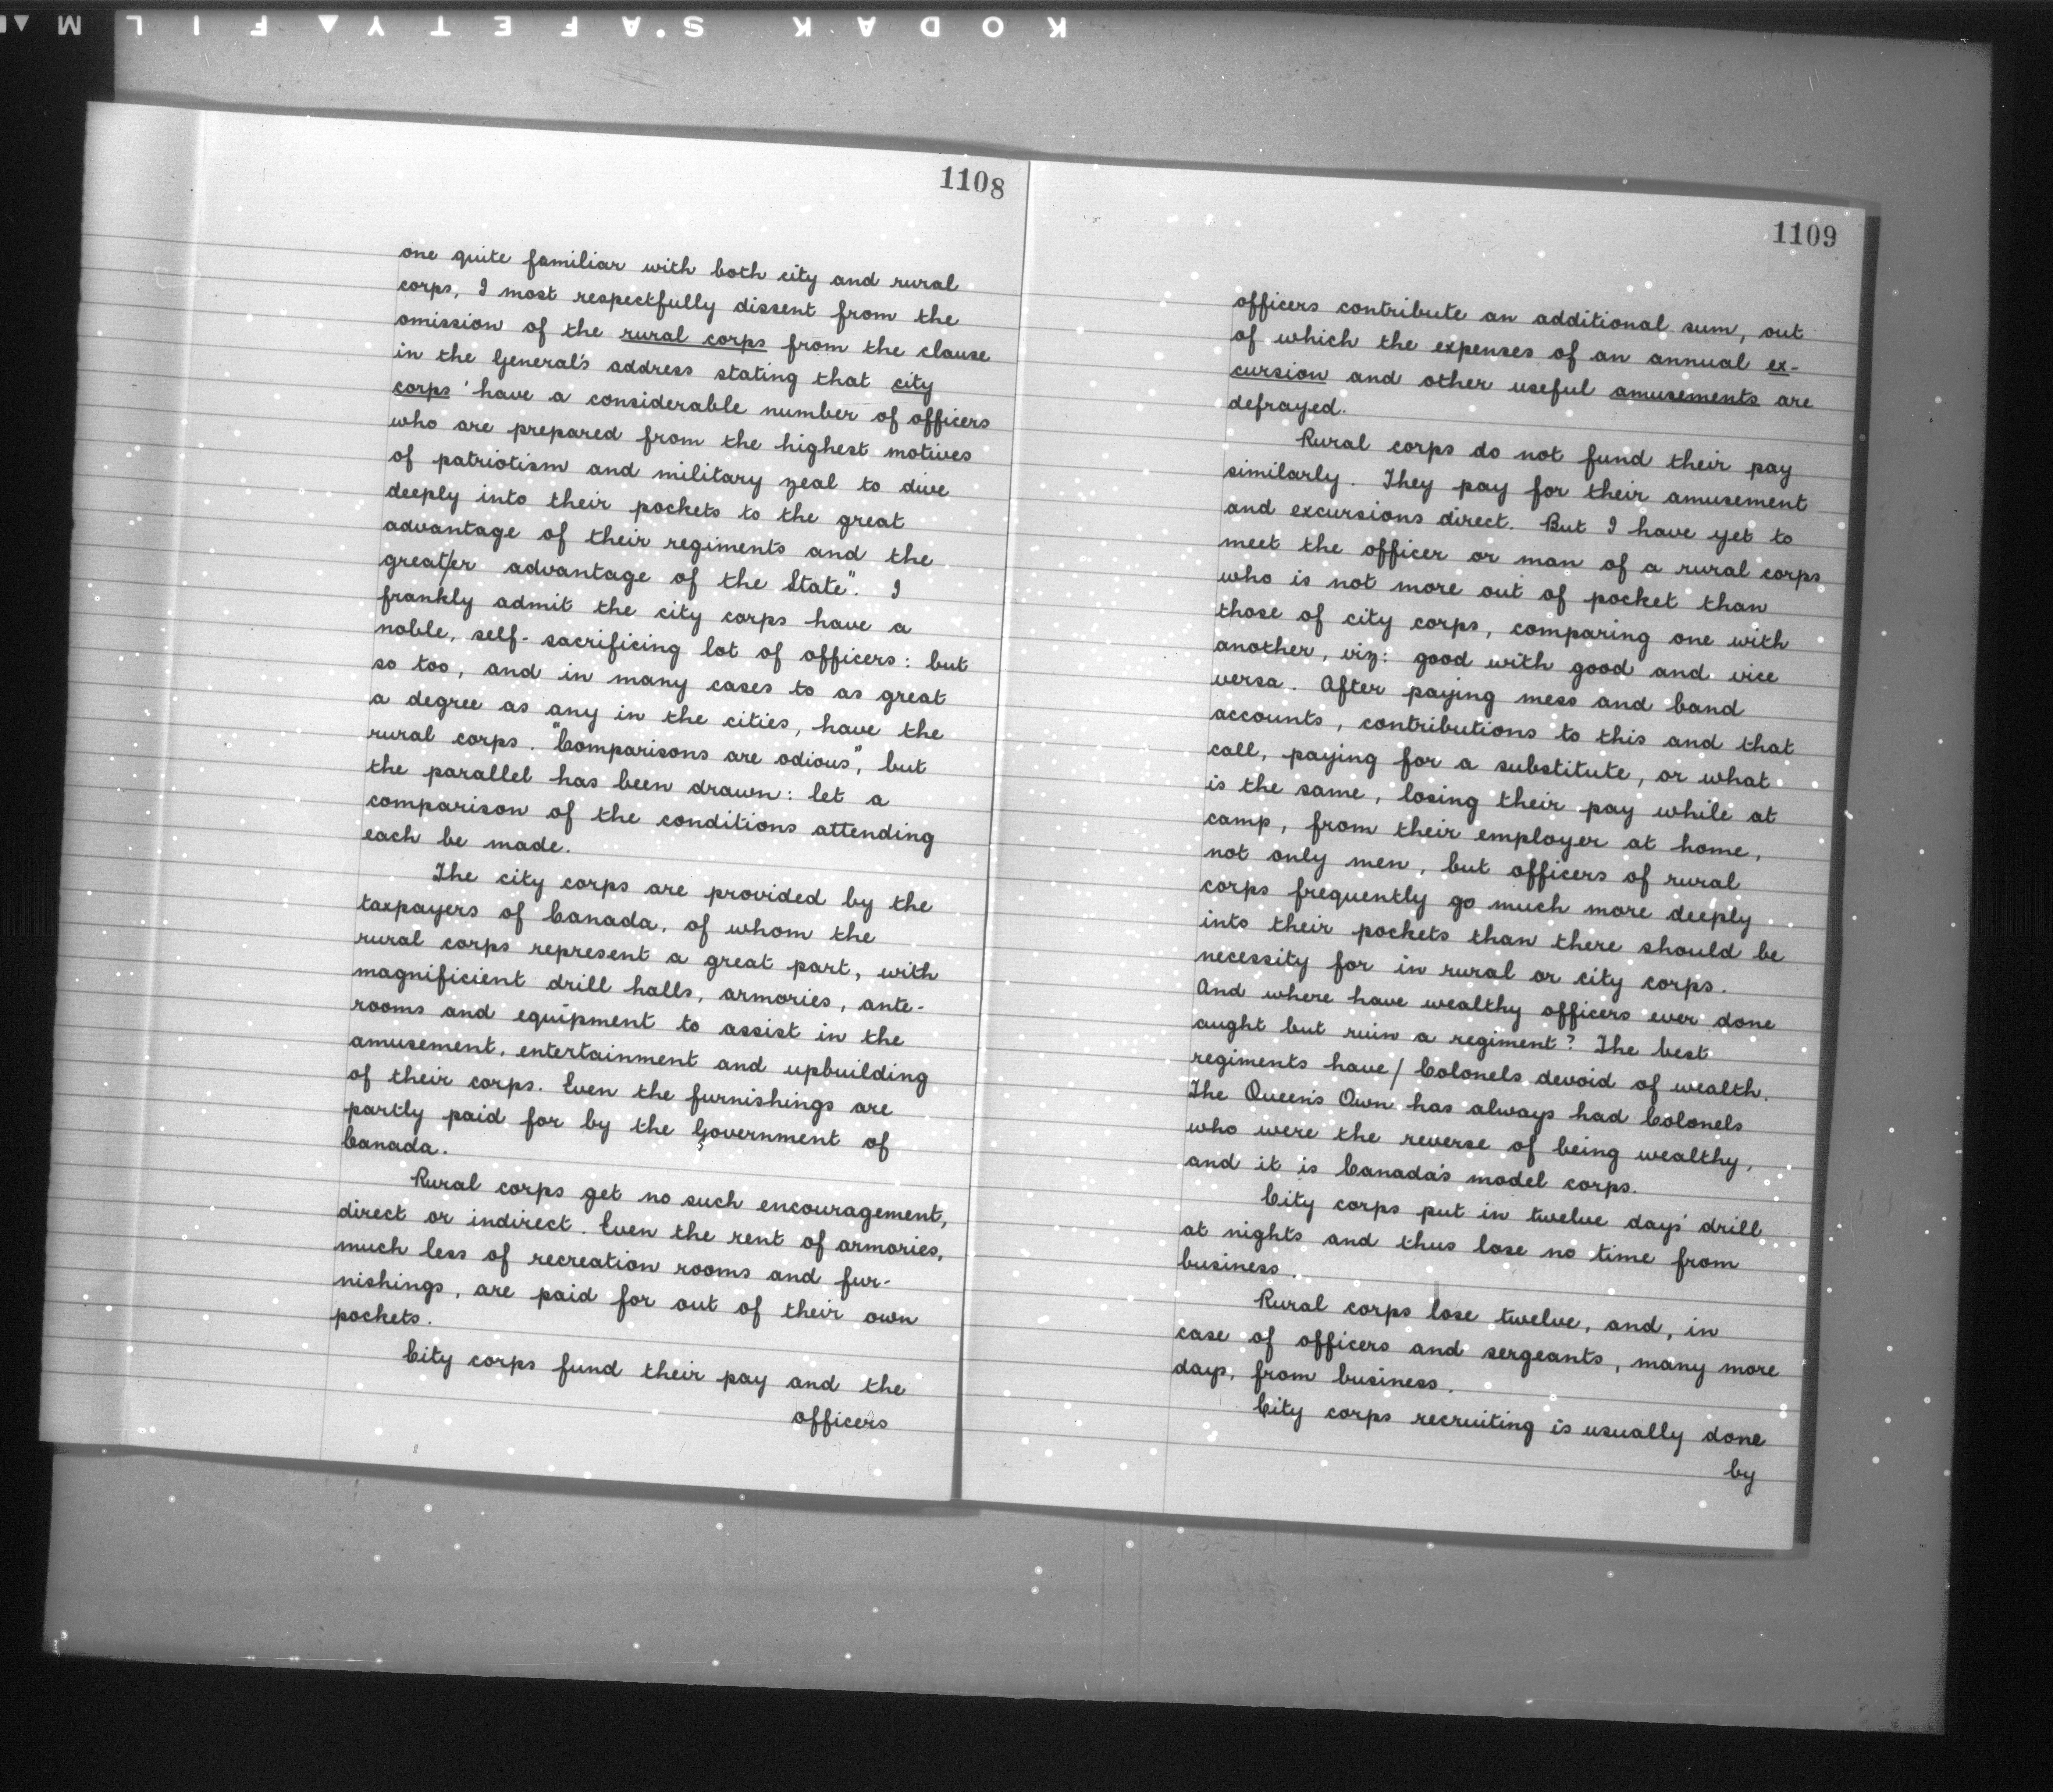 KODAK SAFETY FILM
1108
one quite familiar with both city and rural
corps, I most respectfully dissent from the
omission of the rural corps from the clause
in the General's address stating that city
corps 'have a considerable number of officers
who are prepared from the highest motives
of patriotism and military zeal to dive
deeply into their pockets to the great
advantage of their regiments and the
great/er advantage of the State". I
frankly admit the city corps have a
noble, self-sacrificing lot of officers: but
so too, and in many cases to as great
a degree as any in the cities, have the
rural corps. "Comparisons are odious", but
the parallel has been drawn: let a
comparison of the conditions attending
each be made.
The city corps are provided by the
taxpayers of Canada, of whom the
rural corps represent a great part, with
magnificient drill halls, armories, ante-
rooms and equipment to assist in the
amusement, entertainment and upbuilding
of their corps. Even the furnishings are
partly paid for by the Government of
Canada.
Rural corps get no such encouragement,
direct or indirect. Even the rent of armories,
much less of recreation rooms and fur-
nishings, are paid for out of their own
pockets.
City corps fund their pay and the
officers
1109
officers contribute an additional sum, out
of which the expenses of an annual ex-
cursion and other useful amusements are
defrayed.
Rural corps do not fund their pay
similarly. They pay for their amusement
and excursions direct. But I have yet to
meet the officer or man of a rural corps
who is not more out of pocket than
those of city corps, comparing one with
another, viz: good with good and vice
versa. After paying mess and band
accounts, contributions to this and that
call, paying for a substitute, or what
is the same, losing their pay while at
camp, from their employer at home,
not only men, but officers of rural
corps frequently go much more deeply
into their pockets than there should be
necessity for in rural or city corps.
And where have wealthy officers ever done
aught but ruin a regiment? The best
regiments have/ Colonels devoid of wealth.
The Queen's Own has always had Colonels
who were the reverse of being wealthy,
and it is Canada's model corps.
City corps put in twelve days' drill
at nights and thus lose no time from
business.
Rural corps lose twelve, and, in
case of officers and sergeants, many more
days, from business.
City corps recruiting is usually done
by